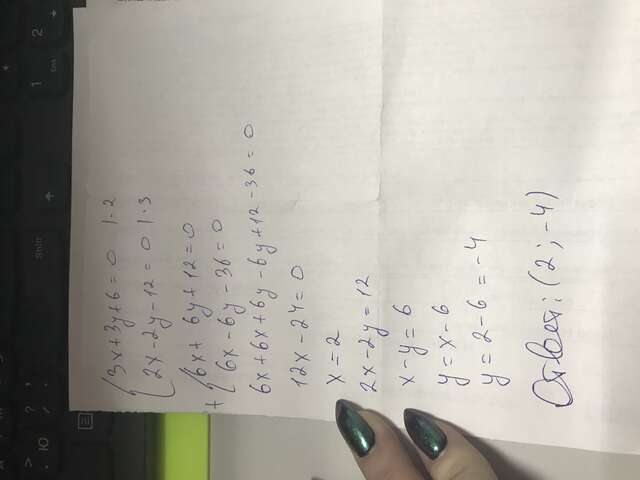 Shift
> . 10
? , /
1 End
2
{ 3x+3y+6=0 |·2
2x-2y-12=0 |·3
+ { 6x+6y+12=0
6x-6y-36=0
6x+6x+6y-6y+12-36=0
12x-24=0
x=2
2x-2y=12
x-y=6
y=x-6
y=2-6=-4
Ответ: (2;-4)